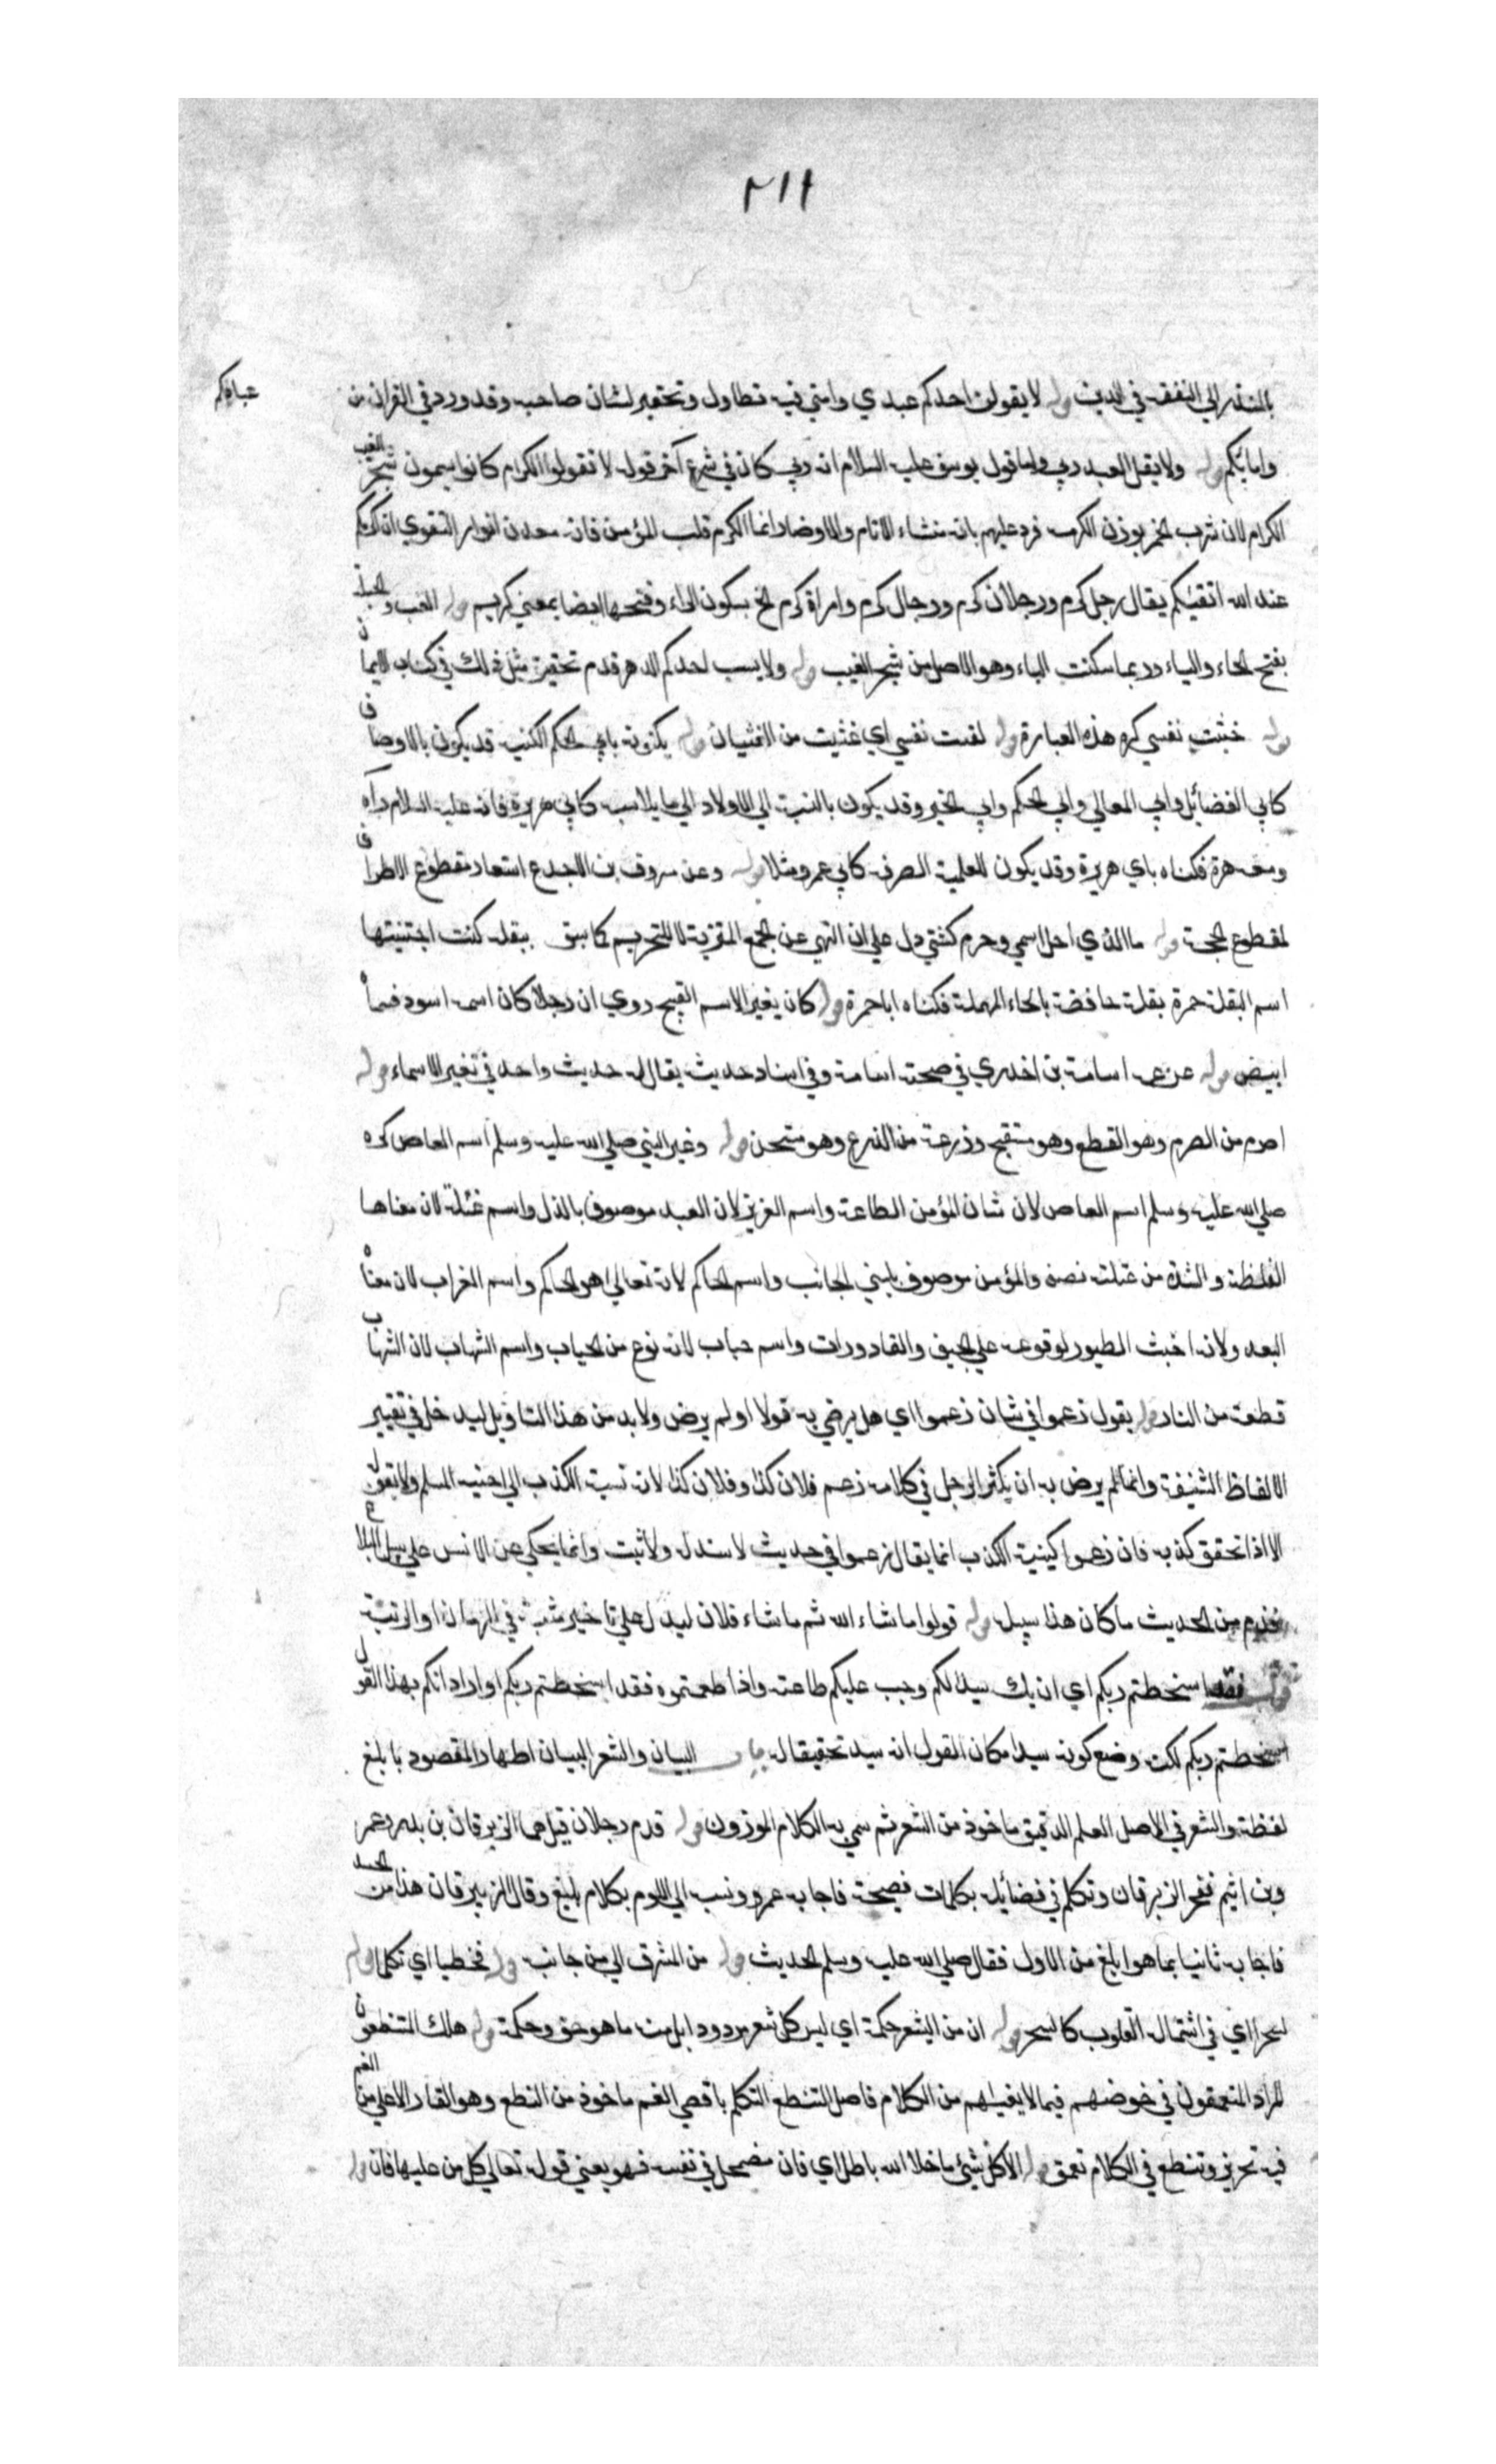 ٢١١
بالمنذر الي التفقه في الدين قوله لا يقولن احدكم عبدي وامتي فيه تطاول وتحقير لشان صاحبه وقد ورد في القران من عبادكم
وامايكم قوله ولا يقل العبد ربي واما قول يوسف عليه السلام انه ربي كان في شرع آخر قوله لا تقولوا الكرام كانوا يسمون شجر العنب
الكرام لان شرب الخمر يورث الكرم فرد عليهم بانه منشاء الاثام والاوضار انما الكرم قلب المؤمن فانه معدن انوار التقوي ان اكرمكم
عند الله اتقيكم يقال رجل كرم ورجلان كرم ورجال كرم وامراة كرم الخ بسكون الراء وفتحها ايضا بمعني كريم قوله العنب والحبلة
بفتح الحاء والباء وربما سكنت الباء وهو الاصل من شجر العنب قوله ولا يسب احدكم الدهر قدم تحقيق مثل ذلك في كتاب الايمان
قوله خبثت نفسي كره هذه العبارة قوله لقست نفسي اي غثيت من الغثيان قوله يكنونه بابي الحكم الكنية قد يكون بالاوصاف
كابي الفضائل وابي المعالي وابي الحكم وابي الخير وقد يكون بالنسبة الي الاولاد الي ما يلابسه كابي هريرة فانه عليه السلام رآه
ومعه هرة فكناه بابي هريرة وقد يكون للعلمية الصرفة كابي عمرو مثلا قوله وعن مسروق بن الاجدع استعار مقطوع الاطراف
لمقطوع الحجة قوله ما الذي احل اسمي وحرم كنيتي دل علي ان النهي عن الجمع للتنزيه لا للتحريم كما سبق ببقلة كنت اجتنيتها
اسم البقلة حمزة بقلة حامضة بالحاء المهملة فكناه ابا حمزة قوله كان يغير الاسم القبيح روي ان رجلا كان اسمه اسود فسماه
ابيض قوله عن عمه اسامة بن اخدري في صحبته اسامة وفي اسناد حديثه يقال له حديث واحد في تغير الاسماء قوله
اصرم من الصرم وهو القطع وهو مستقبح وزرعة من الزرع وهو مستحسن قوله وغير النبي صلي الله عليه وسلم اسم العاص كره
صلي الله عليه وسلم اسم العاص لان شان المؤمن الطاعة واسم العزيز لان العبد موصوف بالذل واسم عتلة لان معناها
الغلظة والشدة من عتلته نصه والمؤمن موصوف بلين الجانب واسم الحاكم لانه تعالي هو الحاكم واسم الغراب لان معناه
البعد ولانه اخبث الطيور لوقوعه علي الجيف والقادورات واسم حباب لانه نوع من الحياب واسم الشهاب لان الشهاب
قطعة من النار قوله يقول زعموا في شان زعموا اي هل يرضي به قولا او لم يرض ولابد من هذا التاويل ليدخل في تغيير
الالفاظ الشنيعة وانما لم يرض به ان يكثر الرجل في كلامه زعم فلان كذا وفلان كذا لانه نسبة الكذب الي اخيه المسلم ولا يقول
الا اذا تحقق كذبه فان زعموا كنية الكذب انما يقال زعموا في حديث لا سند له ولا ثبت وانما يحكي عن الانس علي سبيل البلاغ
فذم من الحديث ما كان هذا سبيله قوله قولوا ما شاء الله ثم ما شاء فلان ليدل علي تاخير مشيته في الزمان او الرتبة
قوله فقد اسخطتم ربكم اي ان يك سيدا لكم وجب عليكم طاعته واذا طعتموه فقد اسخطتم ربكم او اراد انكم بهذا القول
اسخطتم ربكم لكنه وضع كونه سيدا مكان القول انه سيد تحقيقا له باب البيان والشعر البيان اظهار المقصود بابلغ
لفظة والشعر في الاصل العلم الدقيق ماخوذ من الشعر ثم سمي به الكلام الموزون قوله قدم رجلان قيل هما الزبرقان بن بدر وعمر
وبن اثيم ففخر الزبرقان وتكلم في فضائله بكلمات فصيحة فاجابه عمرو ونسبه الي اللوم بكلام بليغ وقال الزبرقان هذا من الحسد
فاجابه ثانيا بما هو ابلغ من الاول فقال صلي الله عليه وسلم الحديث قوله من المشرق الي من جانبه قوله فخطبا اي تكلما قوله
لسحرا اي في استمالة القلوب كالسحر قوله ان من الشعر حكمة اي ليس كل شعر مردودا بل منه ما هو حق وحكمة قوله هلك المتنطعون
المراد المتعمقون في خوضهم فيما لا يعنيهم من الكلام فاصل التنطع التكلم باقصي الفم ماخوذ من النطع وهو الغار الاعلي من الفم
فيه تحزيز وتنطع في الكلام تعمق قوله الا كل شيئ ما خلا الله باطل اي فان مضمحل في نفسه فهو يعني قوله تعالي كل من عليها فان قوله